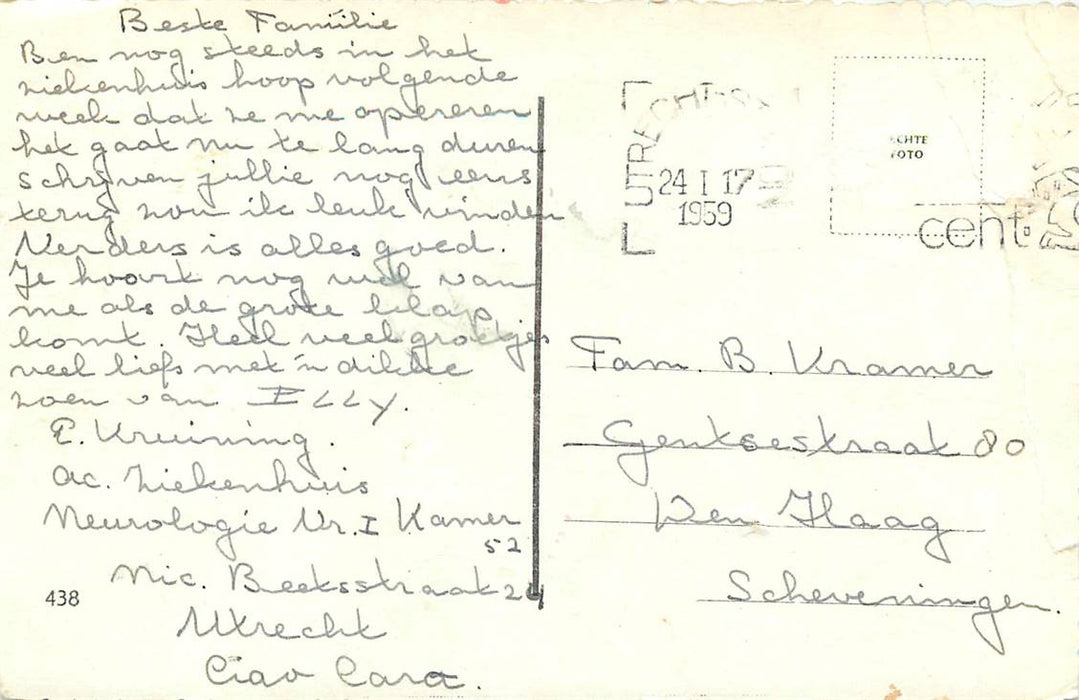 Beste Familie
Ben nog steeds in het
ziekenhuis hoop volgende
week dat ze me opereren
het gaat nu te lang duren
schrijven jullie nog eens
terug zou ik leuk vinden
Verders is alles goed.
Je hoort nog wel van
me als de grote klap
komt. Heel veel groetjes
veel liefs met 'n dikke
zoen van ELLY.
E. Kruining.
Ac. Ziekenhuis
Neurologie Vr. I Kamer
52
Nic. Beetsstraat 24
Utrecht
Ciao Cara.
438
UTRECHT
24 I 17
1959
ECHTE
FOTO
cent
Fam. B. Kramer
Gentsestraat 80
Den Haag
Scheveningen.